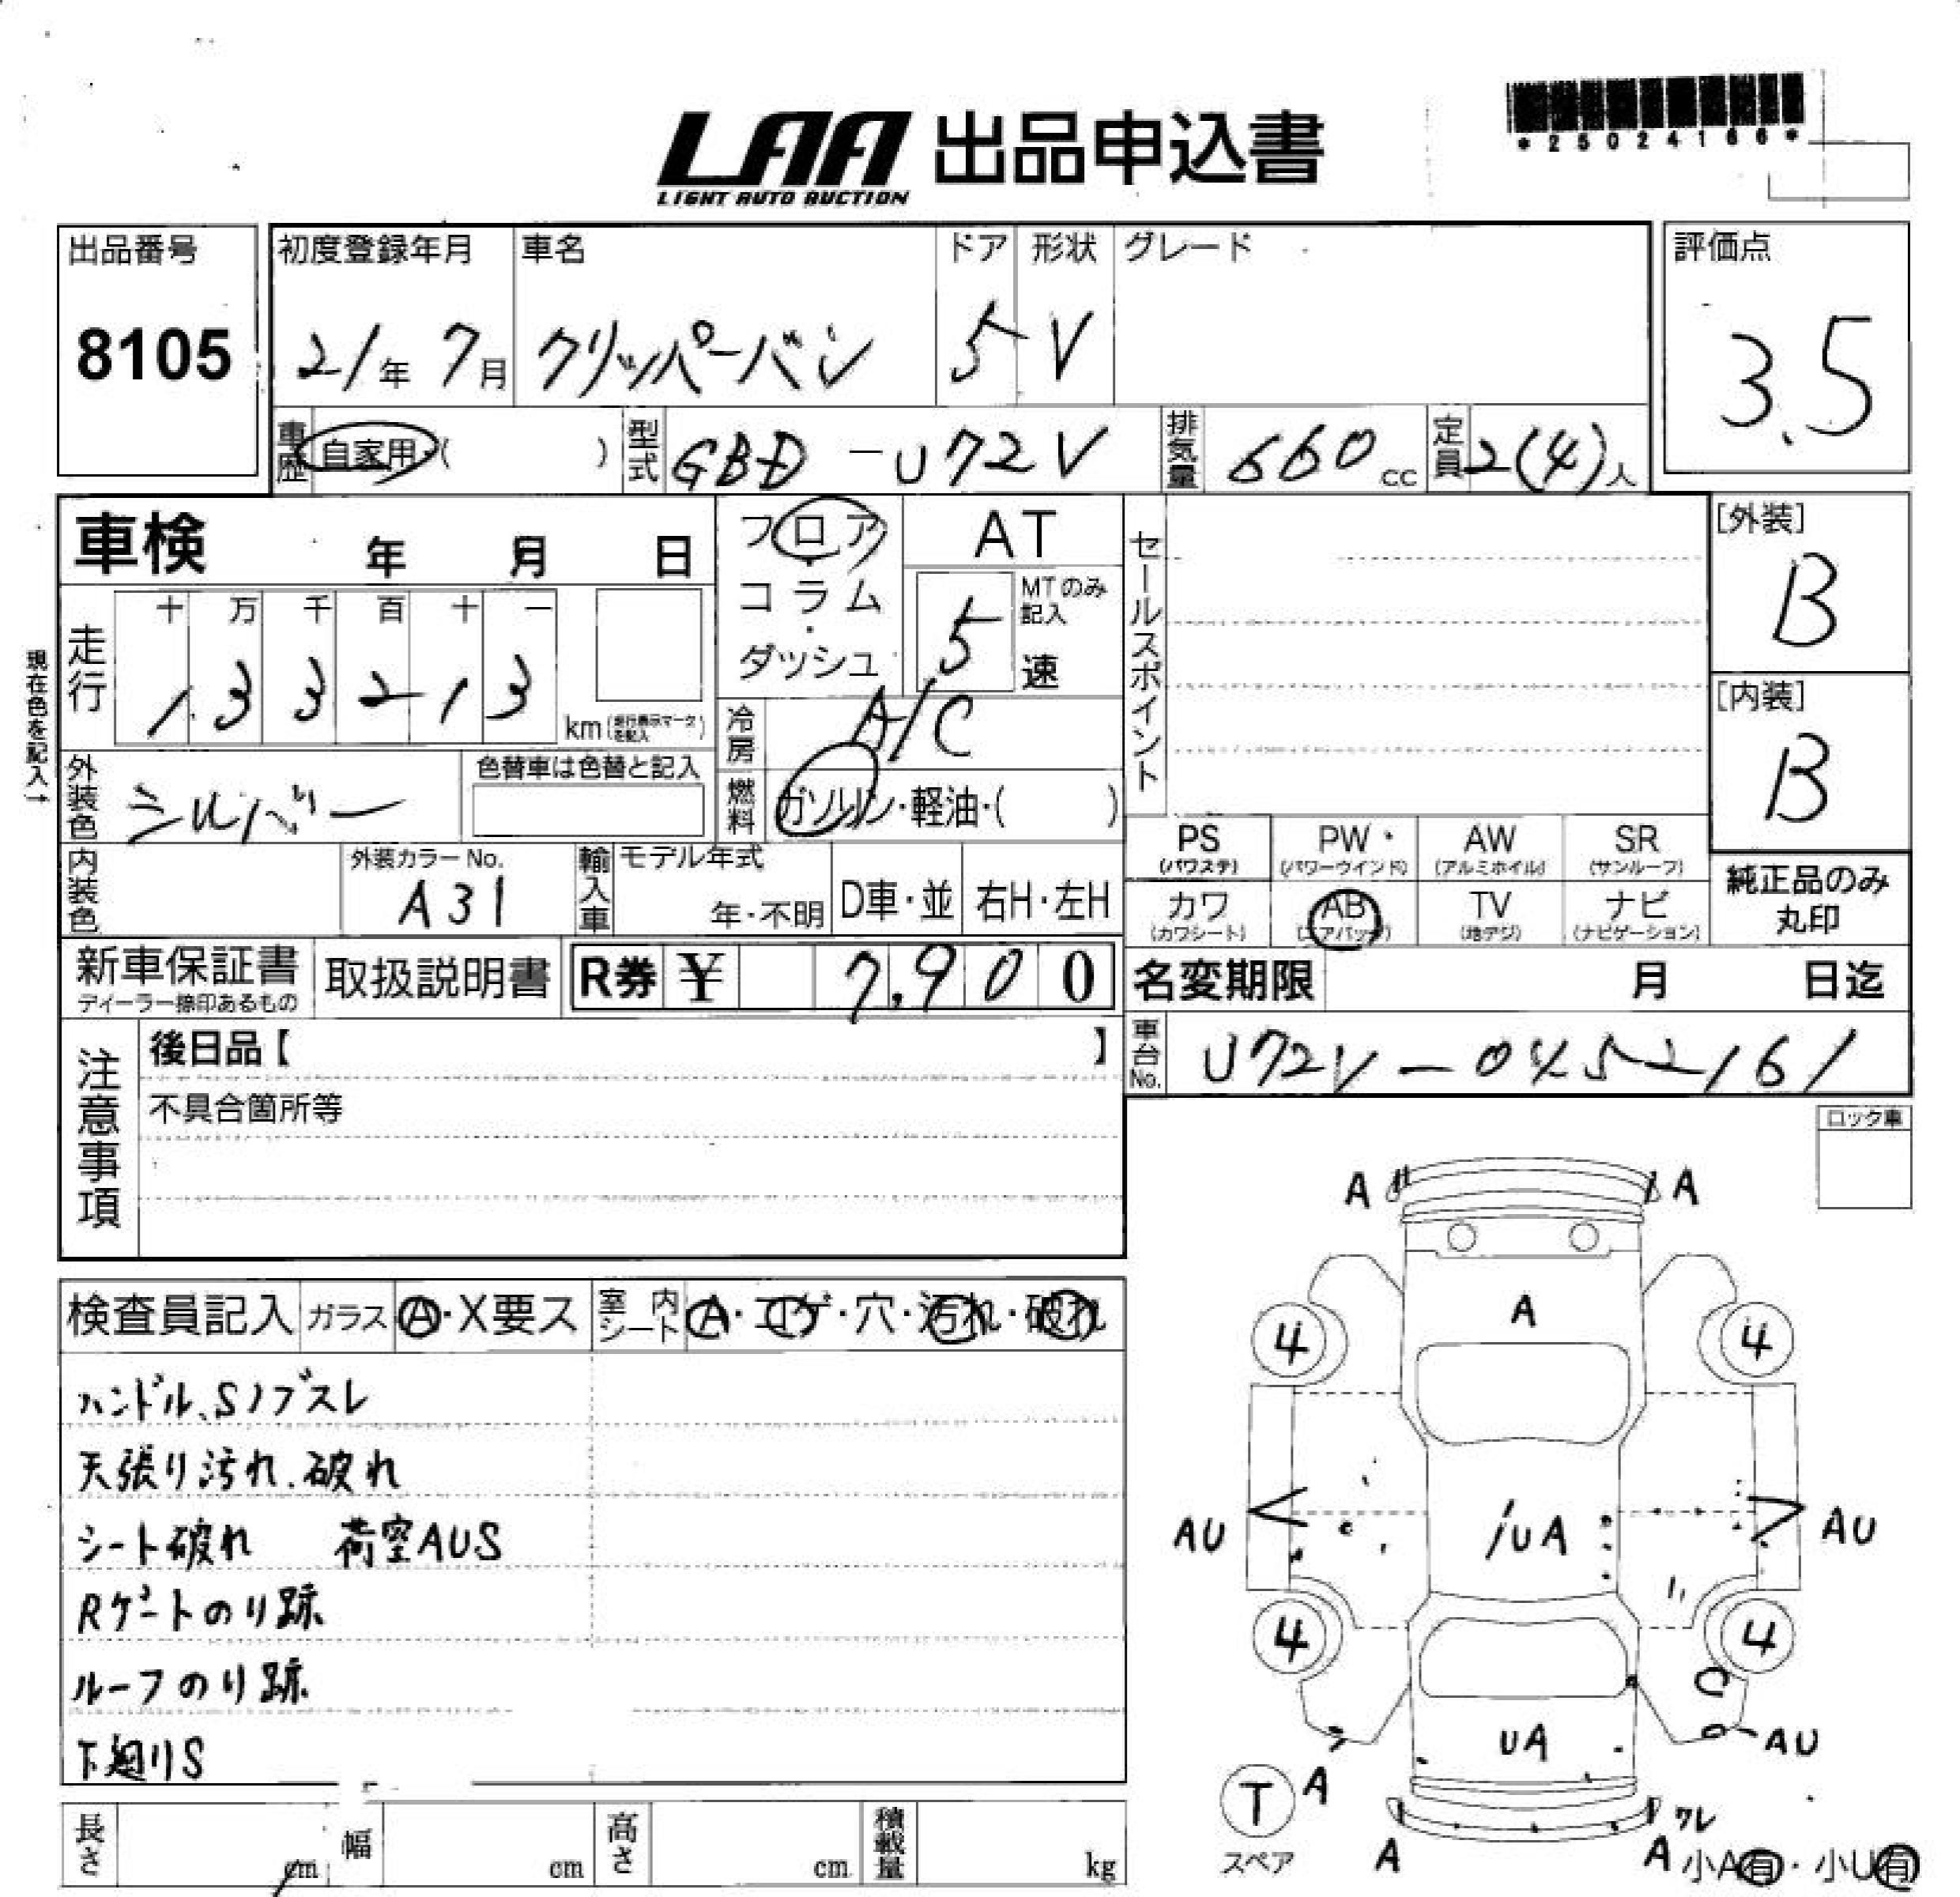 LAA 出品申込書
LIGHT AUTO AUCTION
*25024166*
出品番号
8105
初度登録年月 車名 ドア 形状 グレード
21年 7月 クリッパーバン 5 V
評価点
3.5
車歴 自家用・( ) 型式 GBD-U72V 排気量 660cc 定員 2(4)人
車検 年 月 日
フロア
・
コラム
・
ダッシュ
AT
MTのみ記入
5速
セールスポイント
[外装]
B
[内装]
B
現在色を記入→
走行
十 万 千 百 十 一
1 3 3 2 1 3
km (走行表示マークを記入)
冷房 A/C
外装色 シルバー 色替車は色替と記入
燃料 ガソリン・軽油・( )
PS (パワステ) PW (パワーウインド) AW (アルミホイル) SR (サンルーフ)
カワ (カワシート) AB (エアバッグ) TV (地デジ) ナビ (ナビゲーション)
純正品のみ
丸印
内装色 外装カラーNo. A31
輸入車 モデル年式 年・不明 D車・並 右H・左H
新車保証書 ディーラー捺印あるもの 取扱説明書 R券 ¥ 7,900
名変期限 月 日迄
車台No. U72V-0452161
注意事項
後日品【 】
不具合箇所等
ロック車
検査員記入 ガラス A・X要ス 室内シート A・コゲ・穴・汚れ・破れ
ハンドル、Sノブスレ
天張り汚れ、破れ
シート破れ 荷室AUS
Rゲートのり跡
ルーフのり跡
下廻りS
A A
A
4 4
AU iUA AU
4 4
UA AU
T A
スペア
ワレ
A A
小A有・小U有
長さ cm 幅 cm 高さ cm 積載量 kg